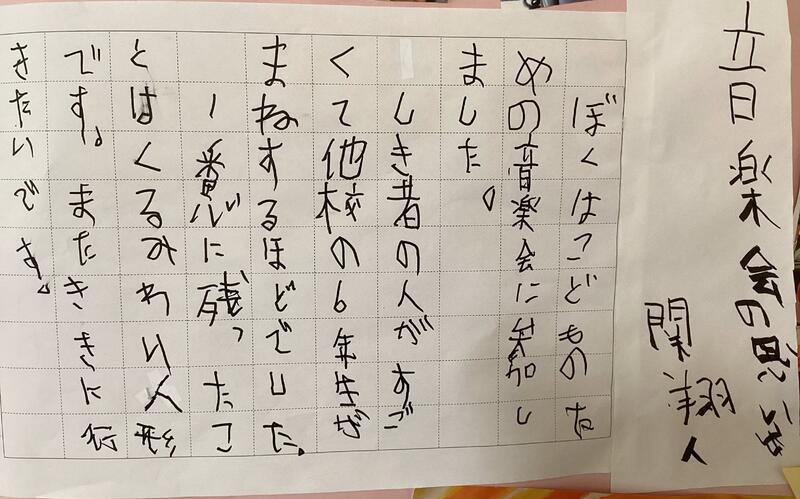 音楽会の思い出
関翔人
ぼくはこどものた
めの音楽会に参加し
ました。
しき者の人がすご
くて他校の6年生が
まねするほどでした。
一番心に残ったこ
とはくるみわり人形
です。またききに行
きたいです。